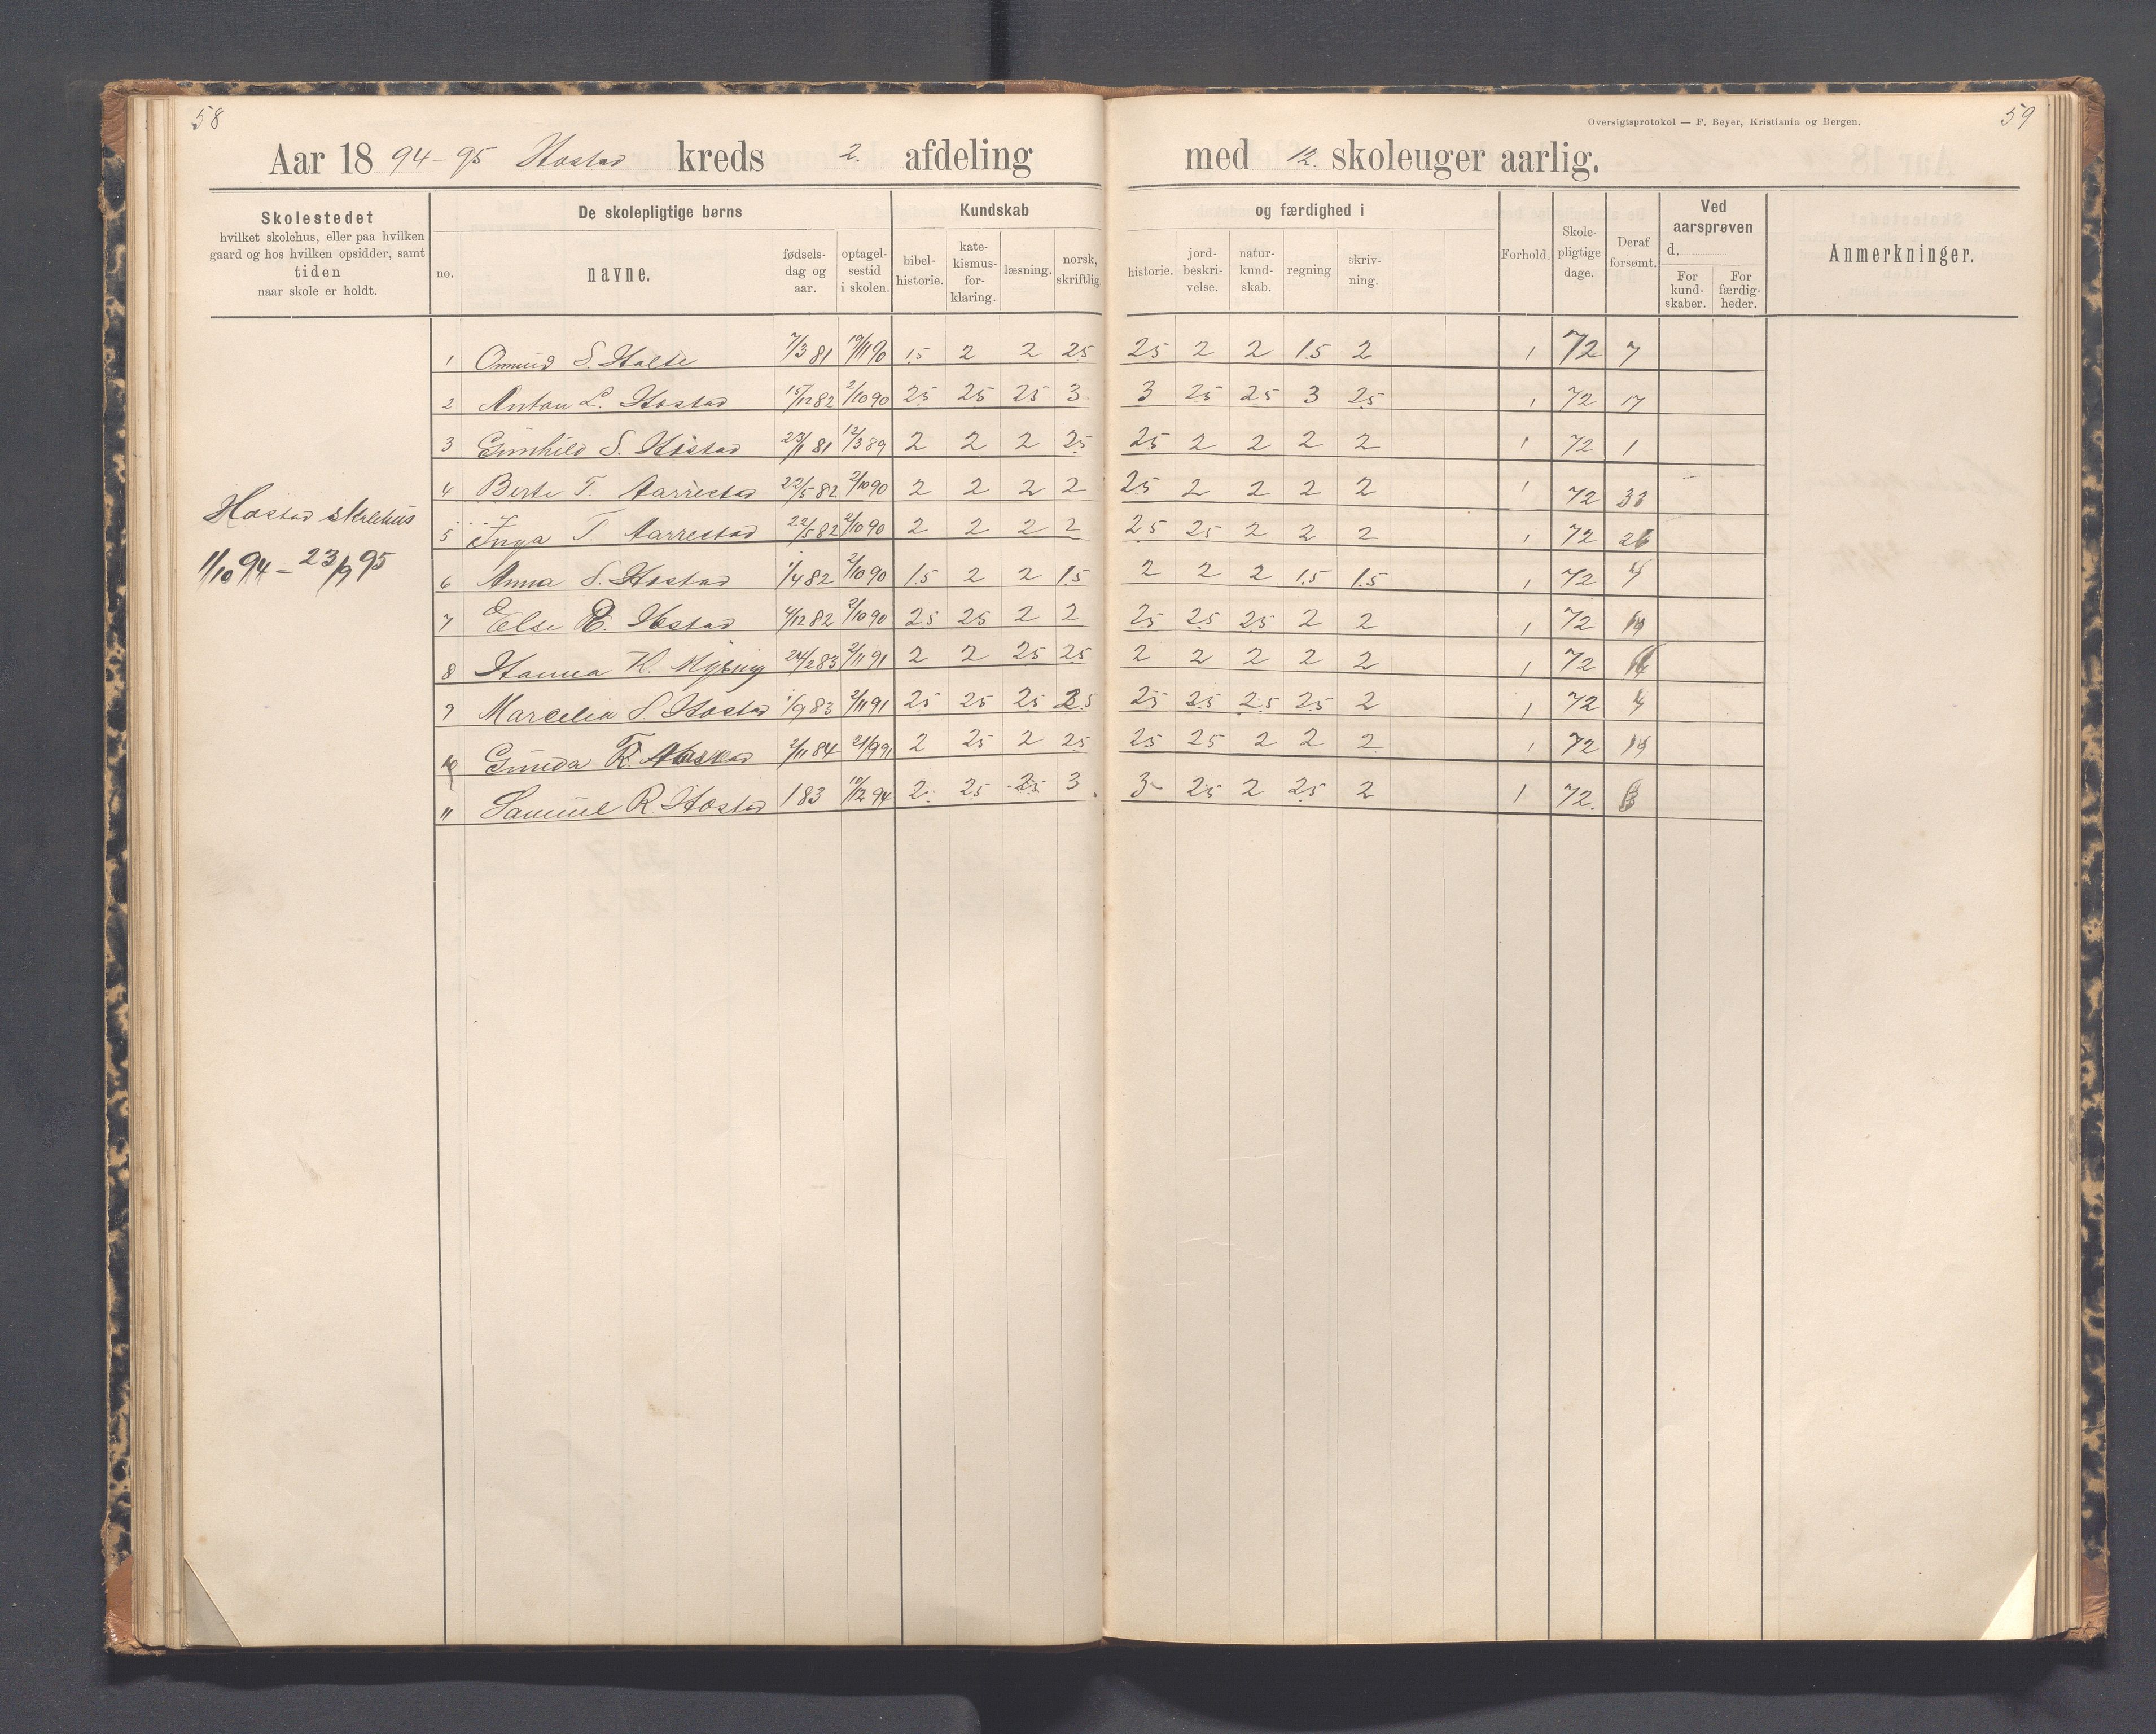 58
59
Oversigtsprotokol — F. Beyer, Kristiania og Bergen.
Aar 18 94-95 Hostad kreds 2. afdeling med 12. skoleuger aarlig.
Skolestedet
hvilket skolehus, eller paa hvilken
gaard og hos hvilken opsidder, samt
tiden
naar skole er holdt.
De skolepligtige børns
no.
navne.
fødsels-
dag og
aar.
optagel-
sestid
i skolen.
Kundskab
bibel-
historie.
kate-
kismus-
for-
klaring.
læsning.
norsk,
skriftlig.
og færdighed i
historie.
jord-
beskri-
velse.
natur-
kund-
skab.
regning
skriv-
ning.
Forhold.
Skole-
pligtige
dage.
Deraf
forsømt.
Ved
aarsprøven
d.
For
kund-
skaber.
For
færdig-
heder.
Anmerkninger.
Hostad skolehus
11/10 94 - 23/9 95
1 Ommid S. Halse 7/3 81 19/11 90 1.5 2 2 2.5 2.5 2 2 1.5 2 1 72 7
2 Anton L. Hostad 15/12 82 2/10 90 2.5 2.5 2.5 3 3 2.5 2.5 3 2.5 1 72 17
3 Gunhild S. Hostad 23/1 81 12/3 89 2 2 2 2.5 2.5 2 2 2 2 1 72 1
4 Berte T. Aarrestad 22/5 82 2/10 90 2 2 2 2 2.5 2 2 2 2 1 72
5 Inga T. Aarrestad 22/5 82 2/10 90 2 2 2 2 2.5 2.5 2 2 2 1 72 26
6 Anna S. Hostad 1/4 82 2/10 90 1.5 2 2 1.5 2 2 2 1.5 1.5 1 72 4
7 Else R. Hostad 4/12 82 2/10 90 2.5 2.5 2 2 2.5 2.5 2.5 2 2 1 72
8 Hanna K. 24/2 83 2/11 91 2 2 2.5 2.5 2 2 2 2 2 1 72
9 Marcelia S. Hostad 1/9 83 2/11 91 2.5 2.5 2.5 2.5 2.5 2.5 2.5 2.5 2 1 72 4
10 Gunda 2/11 84 21/9 91 2 2.5 2 2.5 2.5 2.5 2 2 2 1 72
11 Samuel R. Hostad 183 10/12 94 2 2.5 2.5 3 3 2.5 2 2.5 2 1 72.